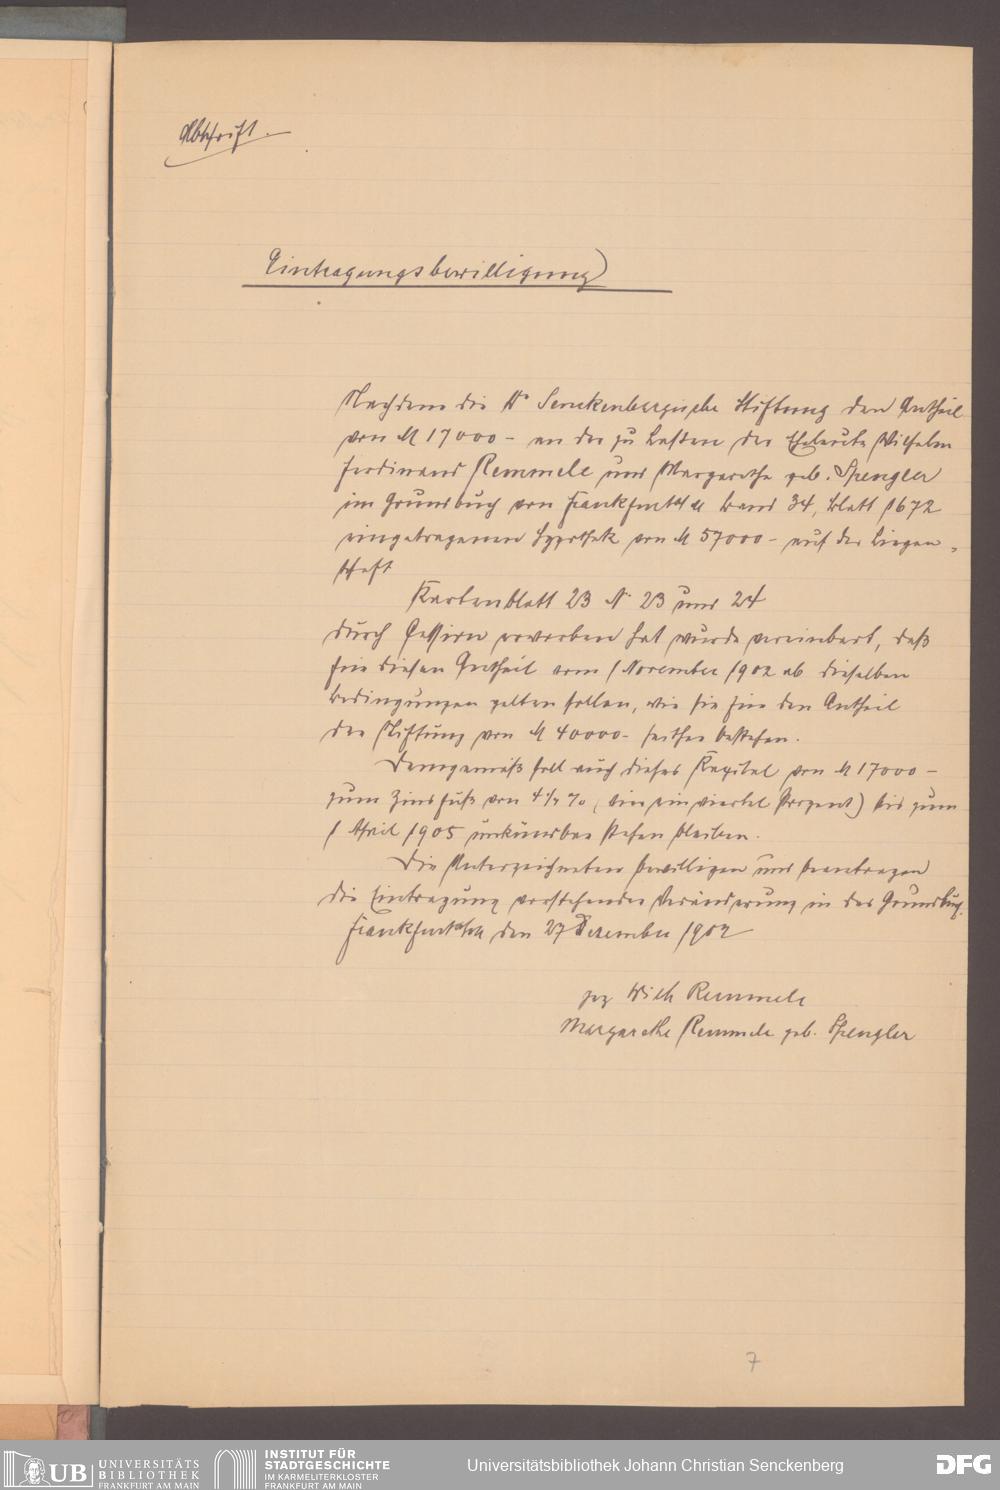 Abschrift.
Eintragungsbewilligung
Nachdem die Dr Senckenbergische Stiftung den Antheil
von M 17000 - an der zu Lasten der Eheleute Wilhelm
Ferdinand Remmele und Margarethe geb. Spengler
im Grundbuch von Frankfurt a/M Band 34, Blatt 1672
eingetragenen Hypothek von M 57000 - auf der Liegen-
schaft
Kartenblatt 23 No 23 und 24
durch Cession erworben hat wurde vereinbart, daß
für diesen Antheil vom 1 November 1902 ab dieselben
Bedingungen gelten sollen, wie sie für den Antheil
der Stiftung von M 40000 - seither bestehen.
Demgemäß soll auch dieses Kapital von M 17000 -
zum Zinsfuß von 4 1/4 %, (vier ein viertel Prozent) bis zum
1 April 1905 unkündbar stehen bleiben.
Die Unterzeichneten bewilligen und beantragen
die Eintragung vorstehender Veränderung in das Grundbuch.
Frankfurt a/M den 27 Dezember 1902
gez Wilh Remmele
Margarethe Remmele geb. Spengler
7
UB UNIVERSITÄTS
BIBLIOTHEK
FRANKFURT AM MAIN
INSTITUT FÜR
STADTGESCHICHTE
IM KARMELITERKLOSTER
FRANKFURT AM MAIN
Universitätsbibliothek Johann Christian Senckenberg
DFG